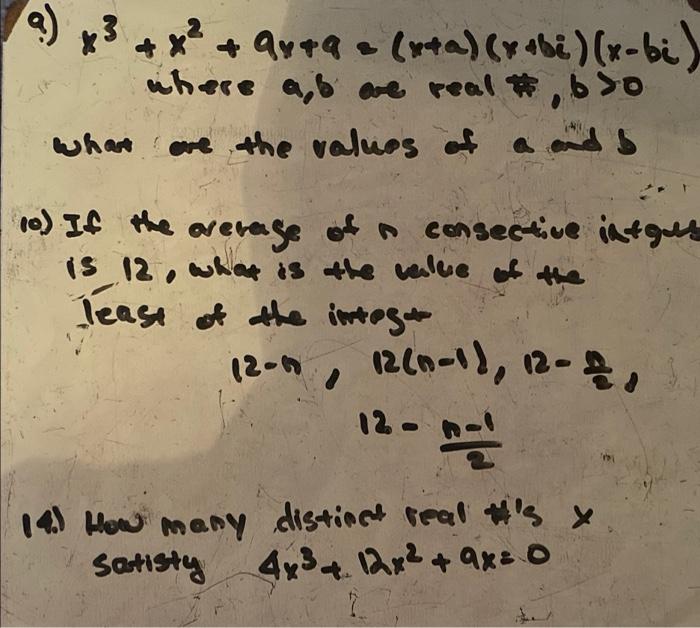 9.) x³ + x² + 9x+9 = (x+a)(x+bi)(x-bi)
where a,b are real #, b>0
what are the values of a and b
10) If the average of n consective intgers
is 12, what is the value of the
least of the integr
12-n, 12(n-1), 12-n/2,
12 - (n-1)/2
14.) How many distinct real #'s x
satisty 4x³ + 12x² + 9x=0